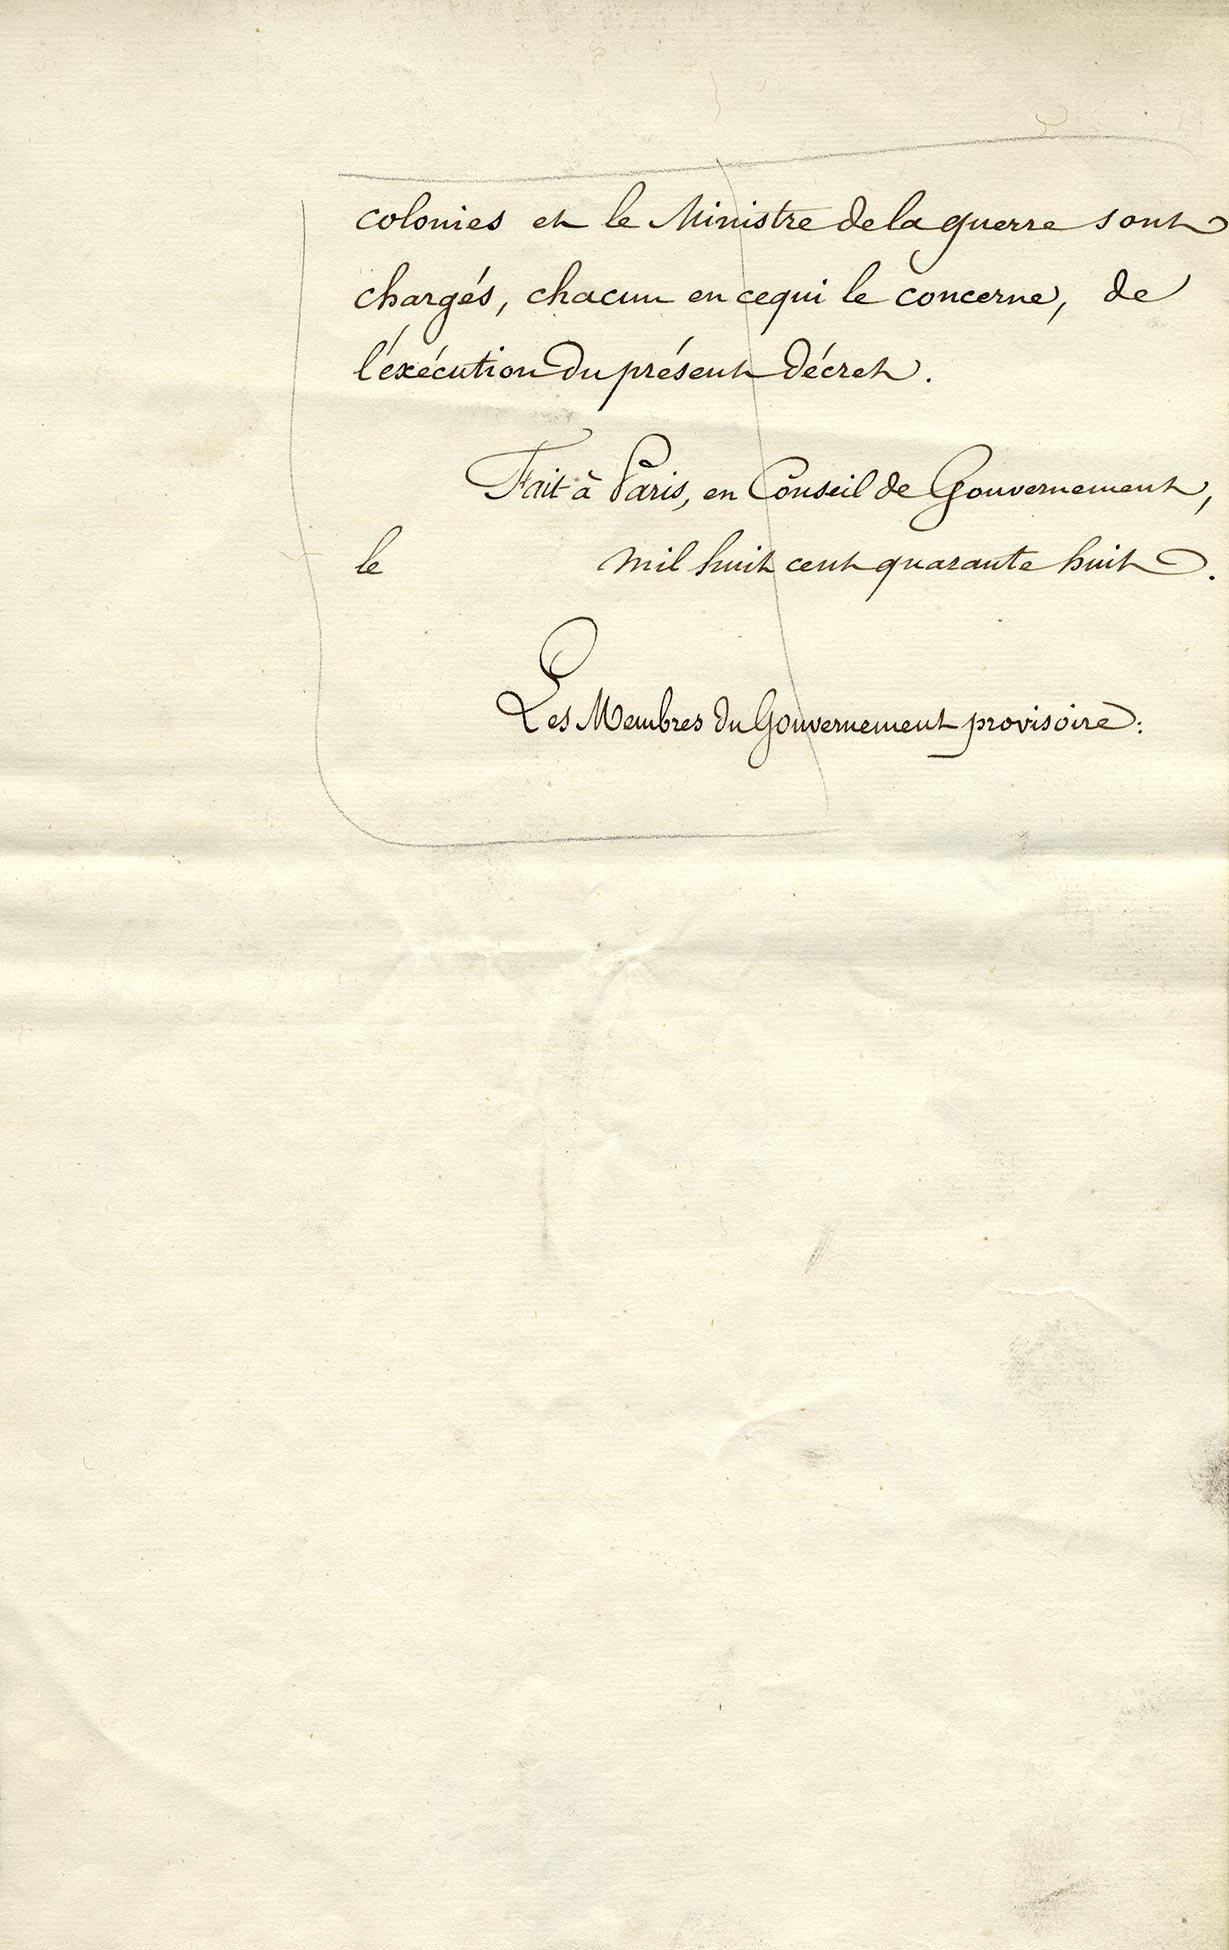 colonies et le Ministre de la guerre sont
chargés, chacun en ce qui le concerne, de
l'éxécution du présent décret.
Fait à Paris, en Conseil de Gouvernement,
le mil huit cent quarante huit.
Les Membres du Gouvernement provisoire: